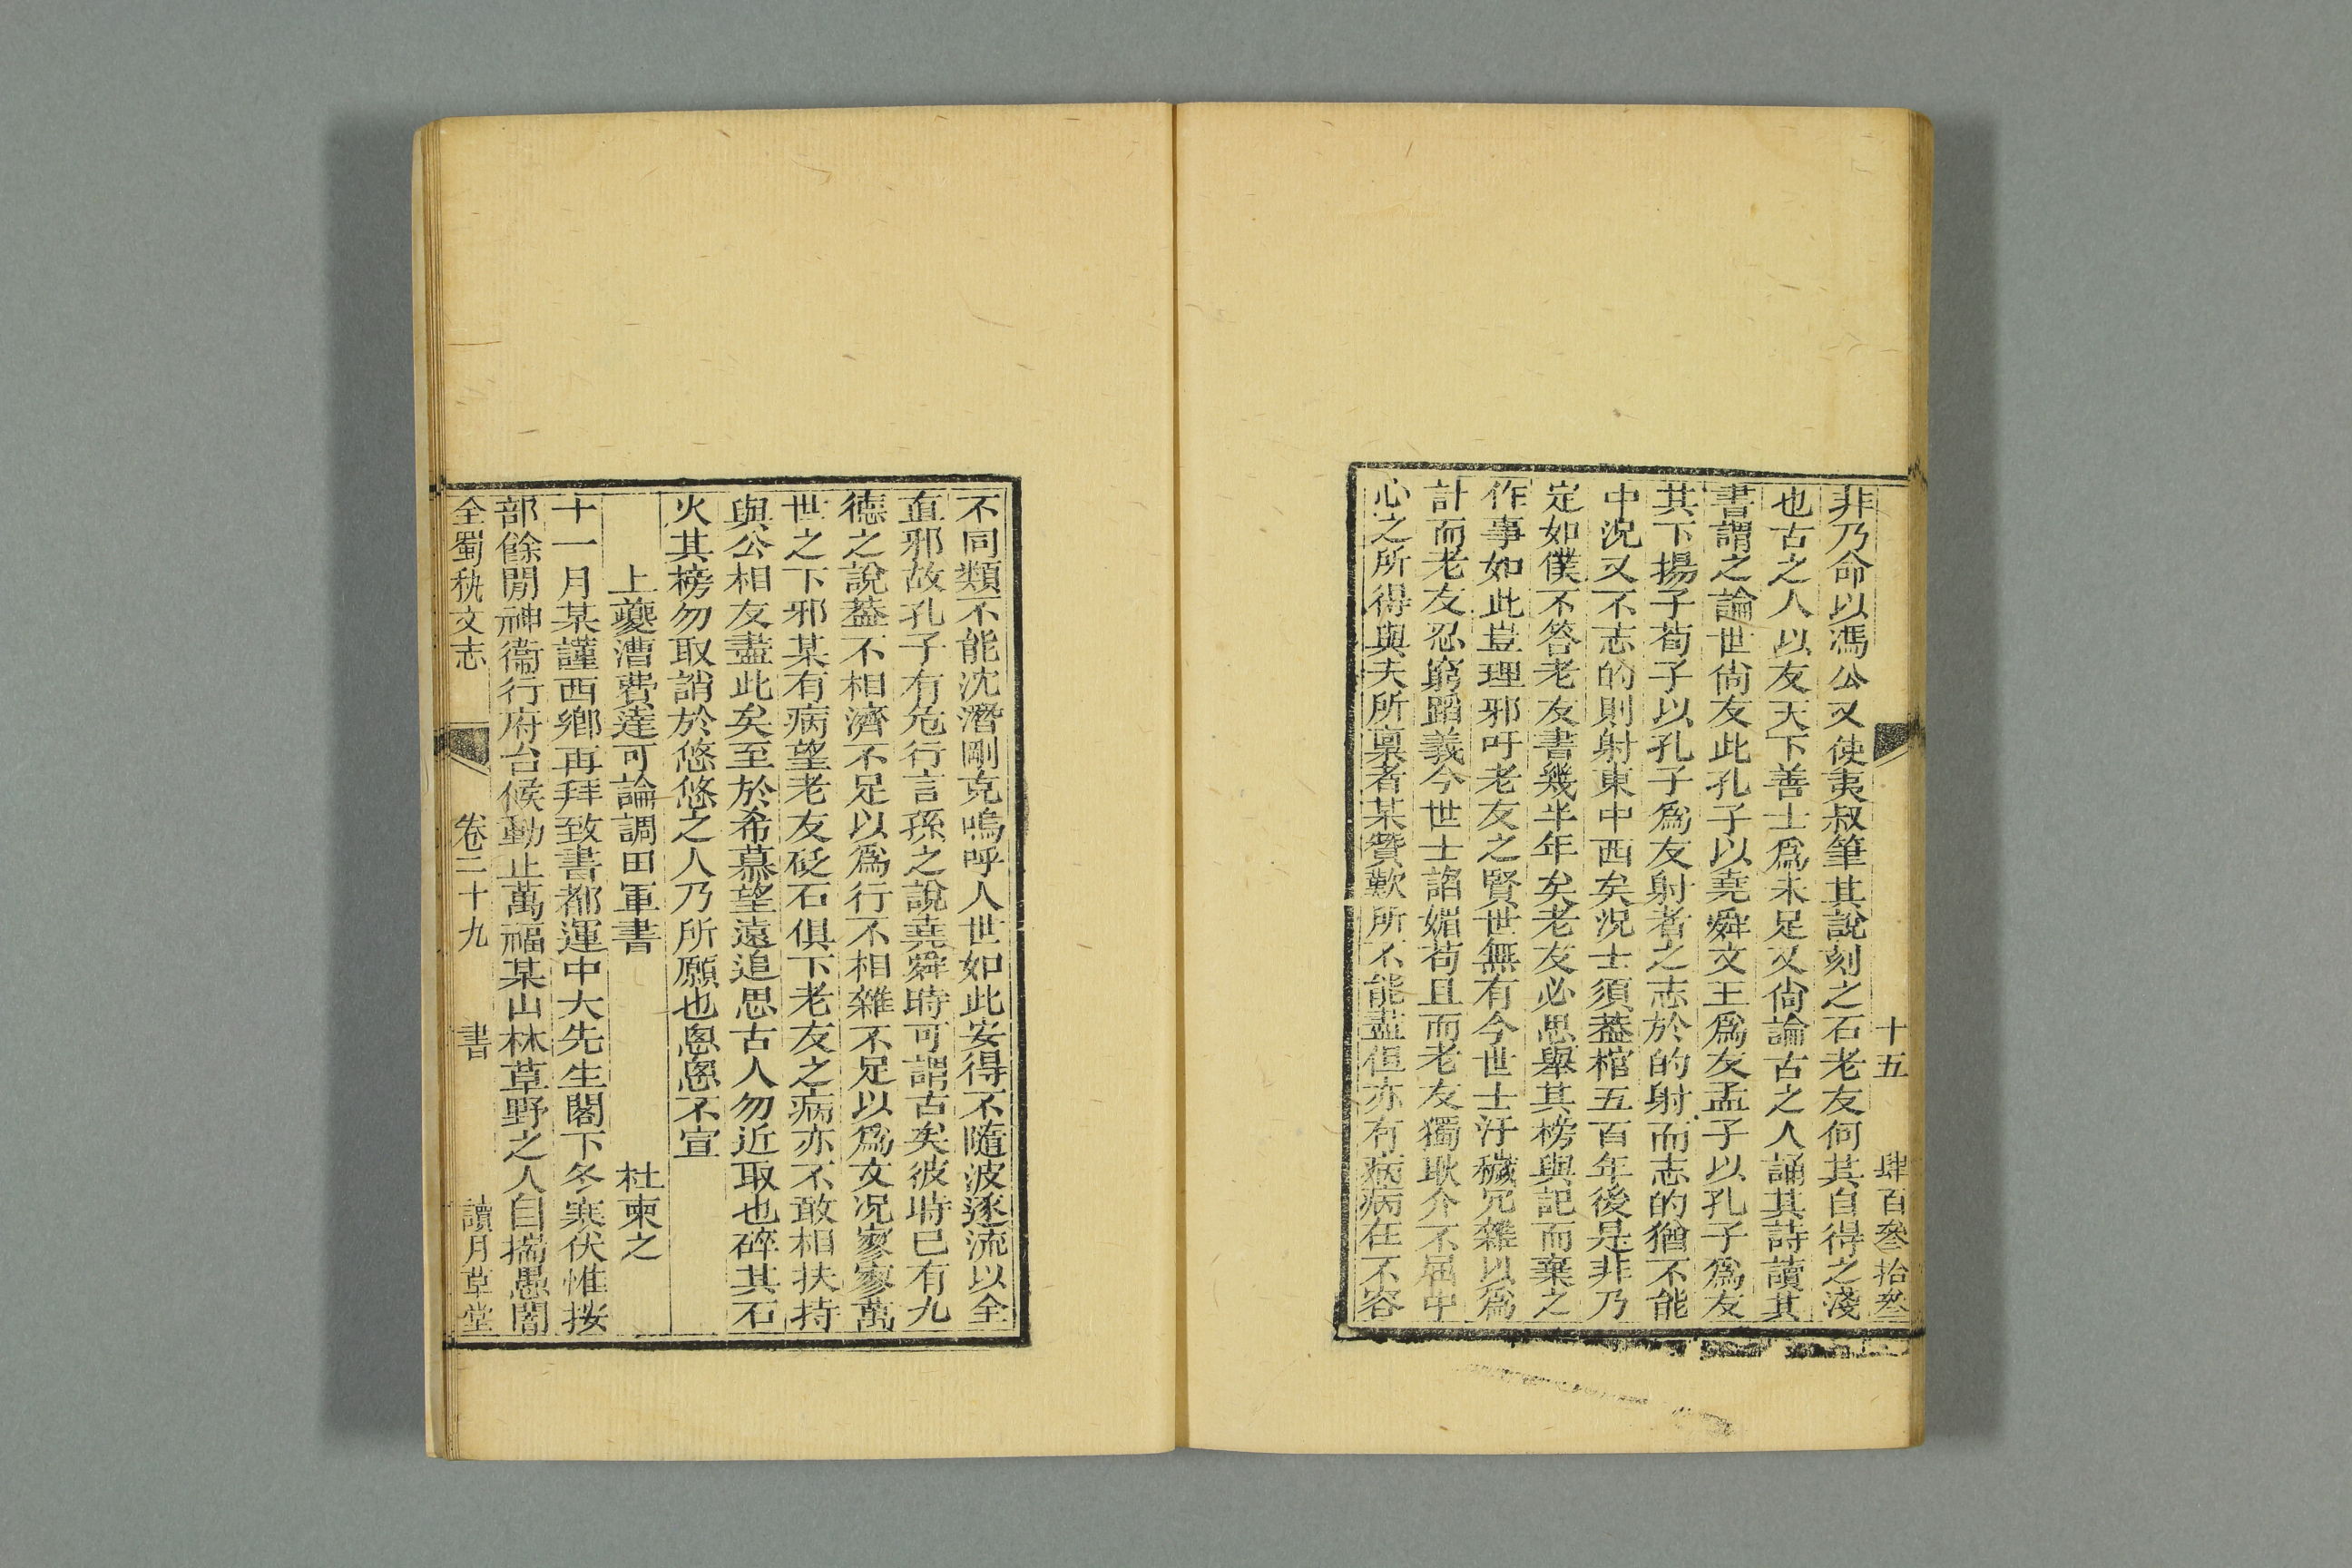 十五 肆百叁拾叁
非乃命以馮公又使夷叔筆其說刻之石老友何其自得之淺
也古之人以友天下善士爲未足又尙論古之人誦其詩讀其
書謂之論世尙友此孔子以堯舜文王爲友孟子以孔子爲友
其下揚子荀子以孔子爲友射者之志於的射而志的猶不能
中況又不志的則射東中西矣況士須葢棺五百年後是非乃
定如僕不答老友書幾半年矣老友必思舉其榜與記而棄之
作事如此豈理邪吁老友之賢世無有今世士汙穢冗雜以爲
計而老友忍窮蹈義今世士諂媚苟且而老友獨耿介不屈中
心之所得與夫所稟者某贊歎所不能盡但亦有病病在不容
不同類不能沈潛剛克嗚呼人世如此安得不隨波逐流以全
直邪故孔子有危行言孫之說堯舜時可謂古矣彼時已有九
德之說葢不相濟不足以爲行不相雜不足以爲友况寥寥萬
世之下邪某有病望老友砭石俱下老友之病亦不敢相扶持
與公相友盡此矣至於希慕望遠追思古人勿近取也碎其石
火其榜勿取誚於悠悠之人乃所願也恖恖不宣
上夔漕費達可論調田軍書 杜柬之
十一月某謹西鄉再拜致書都運中大先生閣下冬寒伏惟按
部餘閒神衞行府台候動止萬福某山林草野之人自揣愚闇
全蜀秇文志 卷二十九 書 讀月草堂